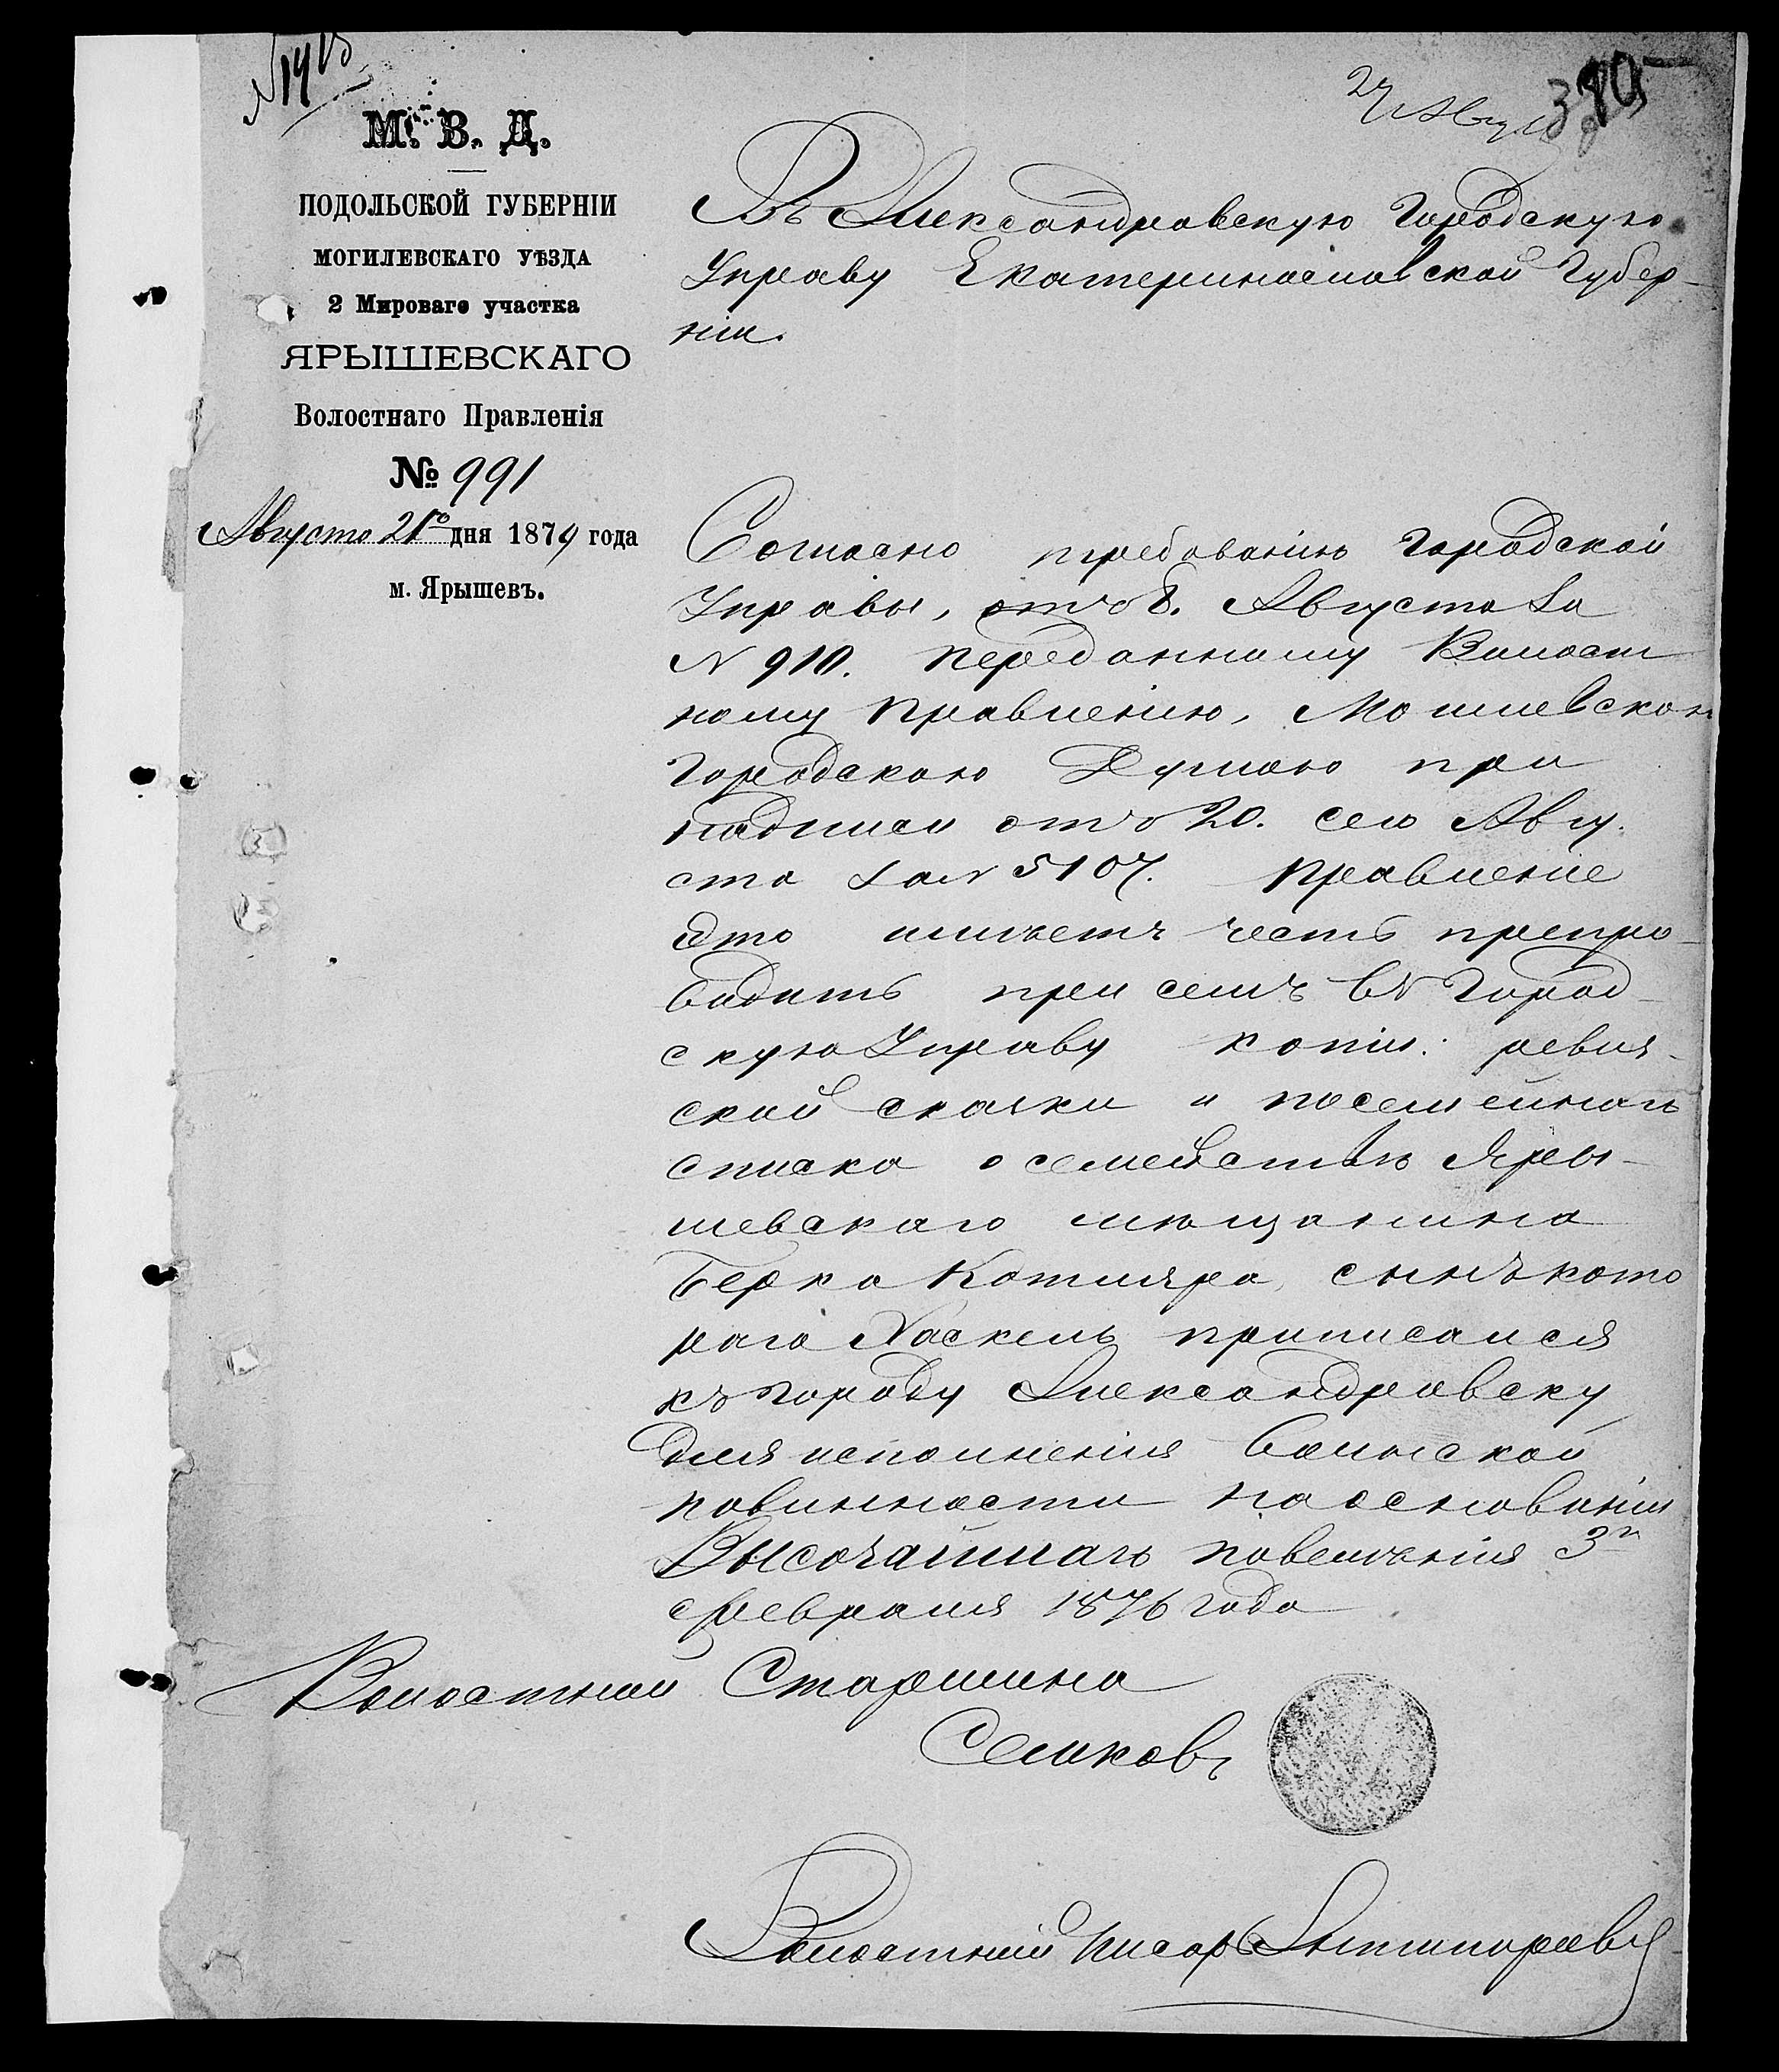 М. В. Д.
ПОДОЛЬСКОЙ ГУБЕРНІИ
МОГИЛЕВСКАГО УѢЗДА
2 Мироваго участка
ЯРЫШЕВСКАГО
Волостнаго Правленія
№ 991
Августа 21го дня 1879 года
м. Ярышевъ.
27 Авгу
Въ Александровскую Городскую
Управу Екатеринославской Губер-
ніи.
Согласно требованію Городской
Управы, отъ 8. Августа за
N 910. переданному Волост
ному Правленію, Могилевскою
Городскою Думою при
надписи отъ 20. сего Авгу-
ста за N 5107. Правленіе
это имѣетъ честь препро-
водить при семъ въ Город-
скую Управу копіи: ревиз-
ской сказки и посемейнаго
списка о семействѣ Яры-
шевскаго мѣщанина
Берка Котляра, сынъ кото
раго Хаскель приписался
къ городу Александровску
для исполненія воинской
повинности на основаніи
Высочайшаго повелѣнія 3го
февраля 1876 года
Волостной Старшина
Волостной Писарь